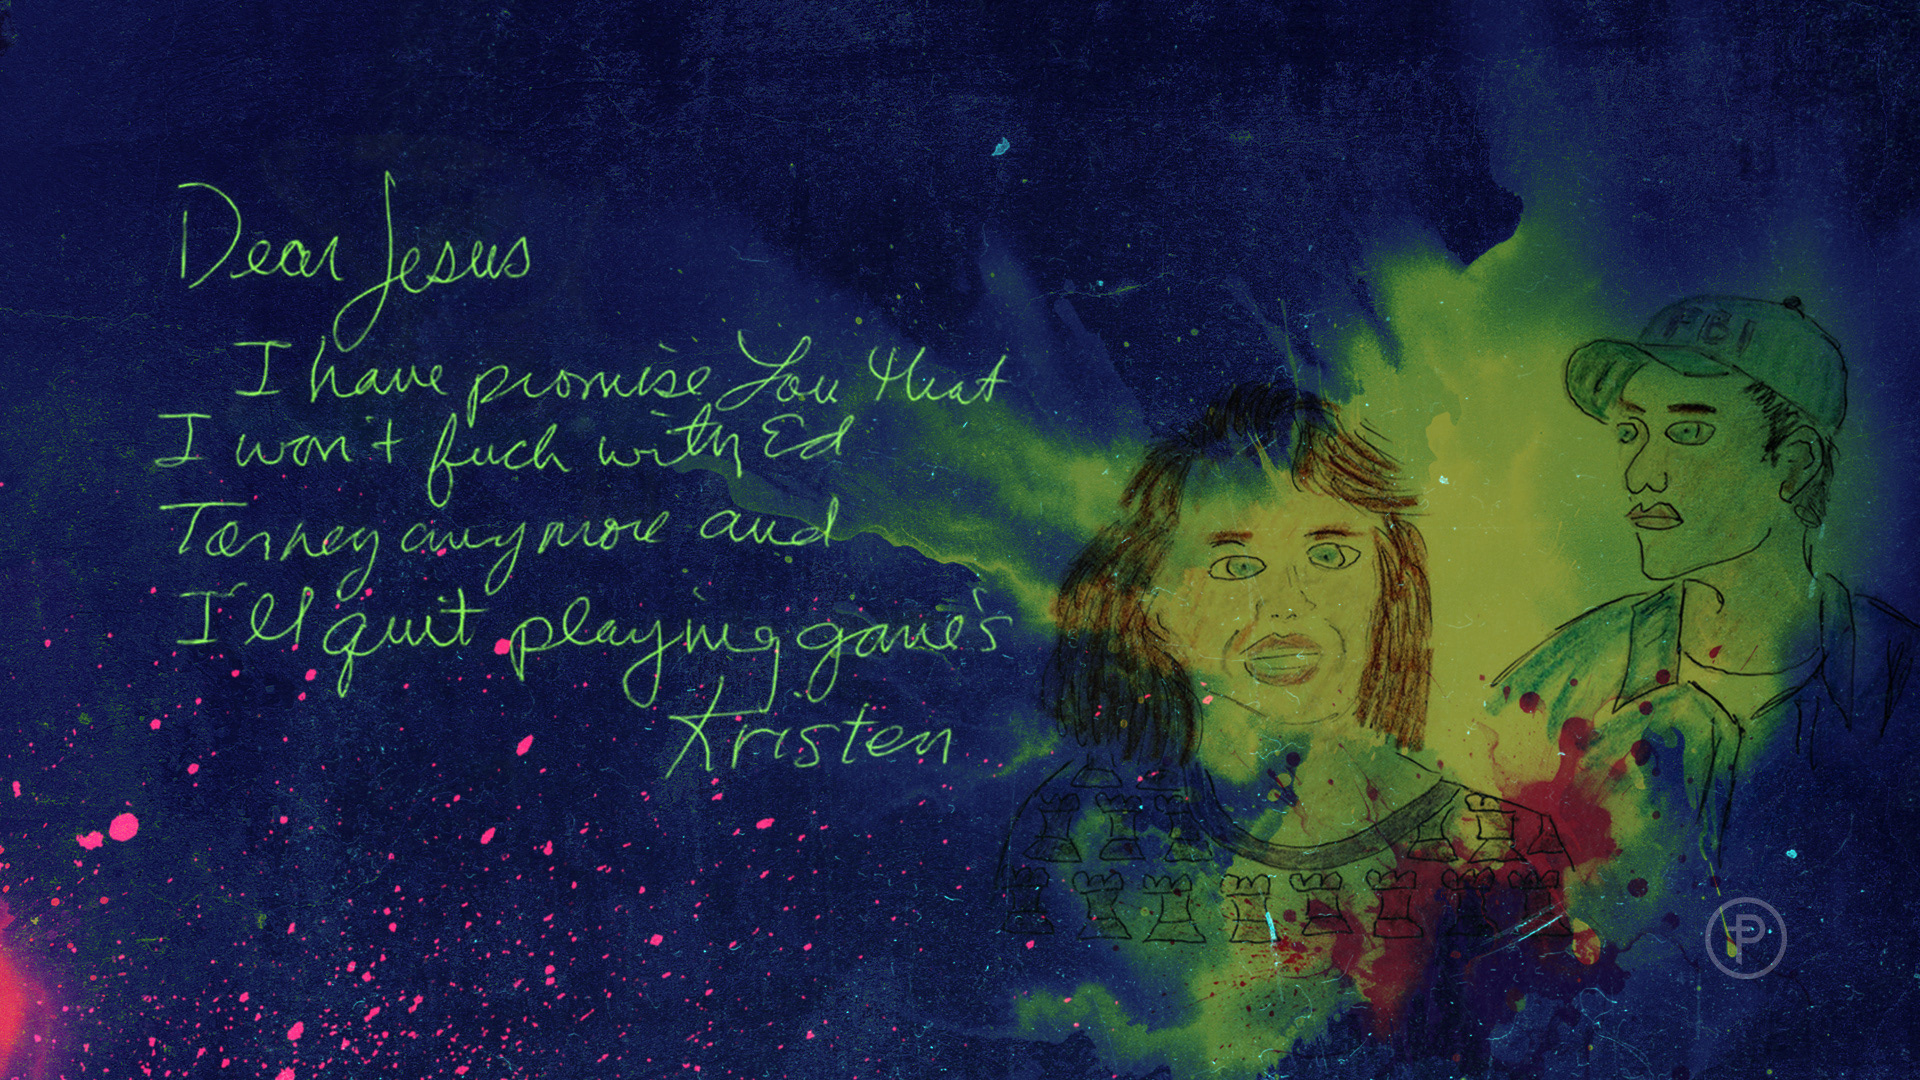 Dear Jesus
I have promise You that
I won't fuck with Ed
Torney anymore and
I'll quit playing game's
Kristen
FBI
P